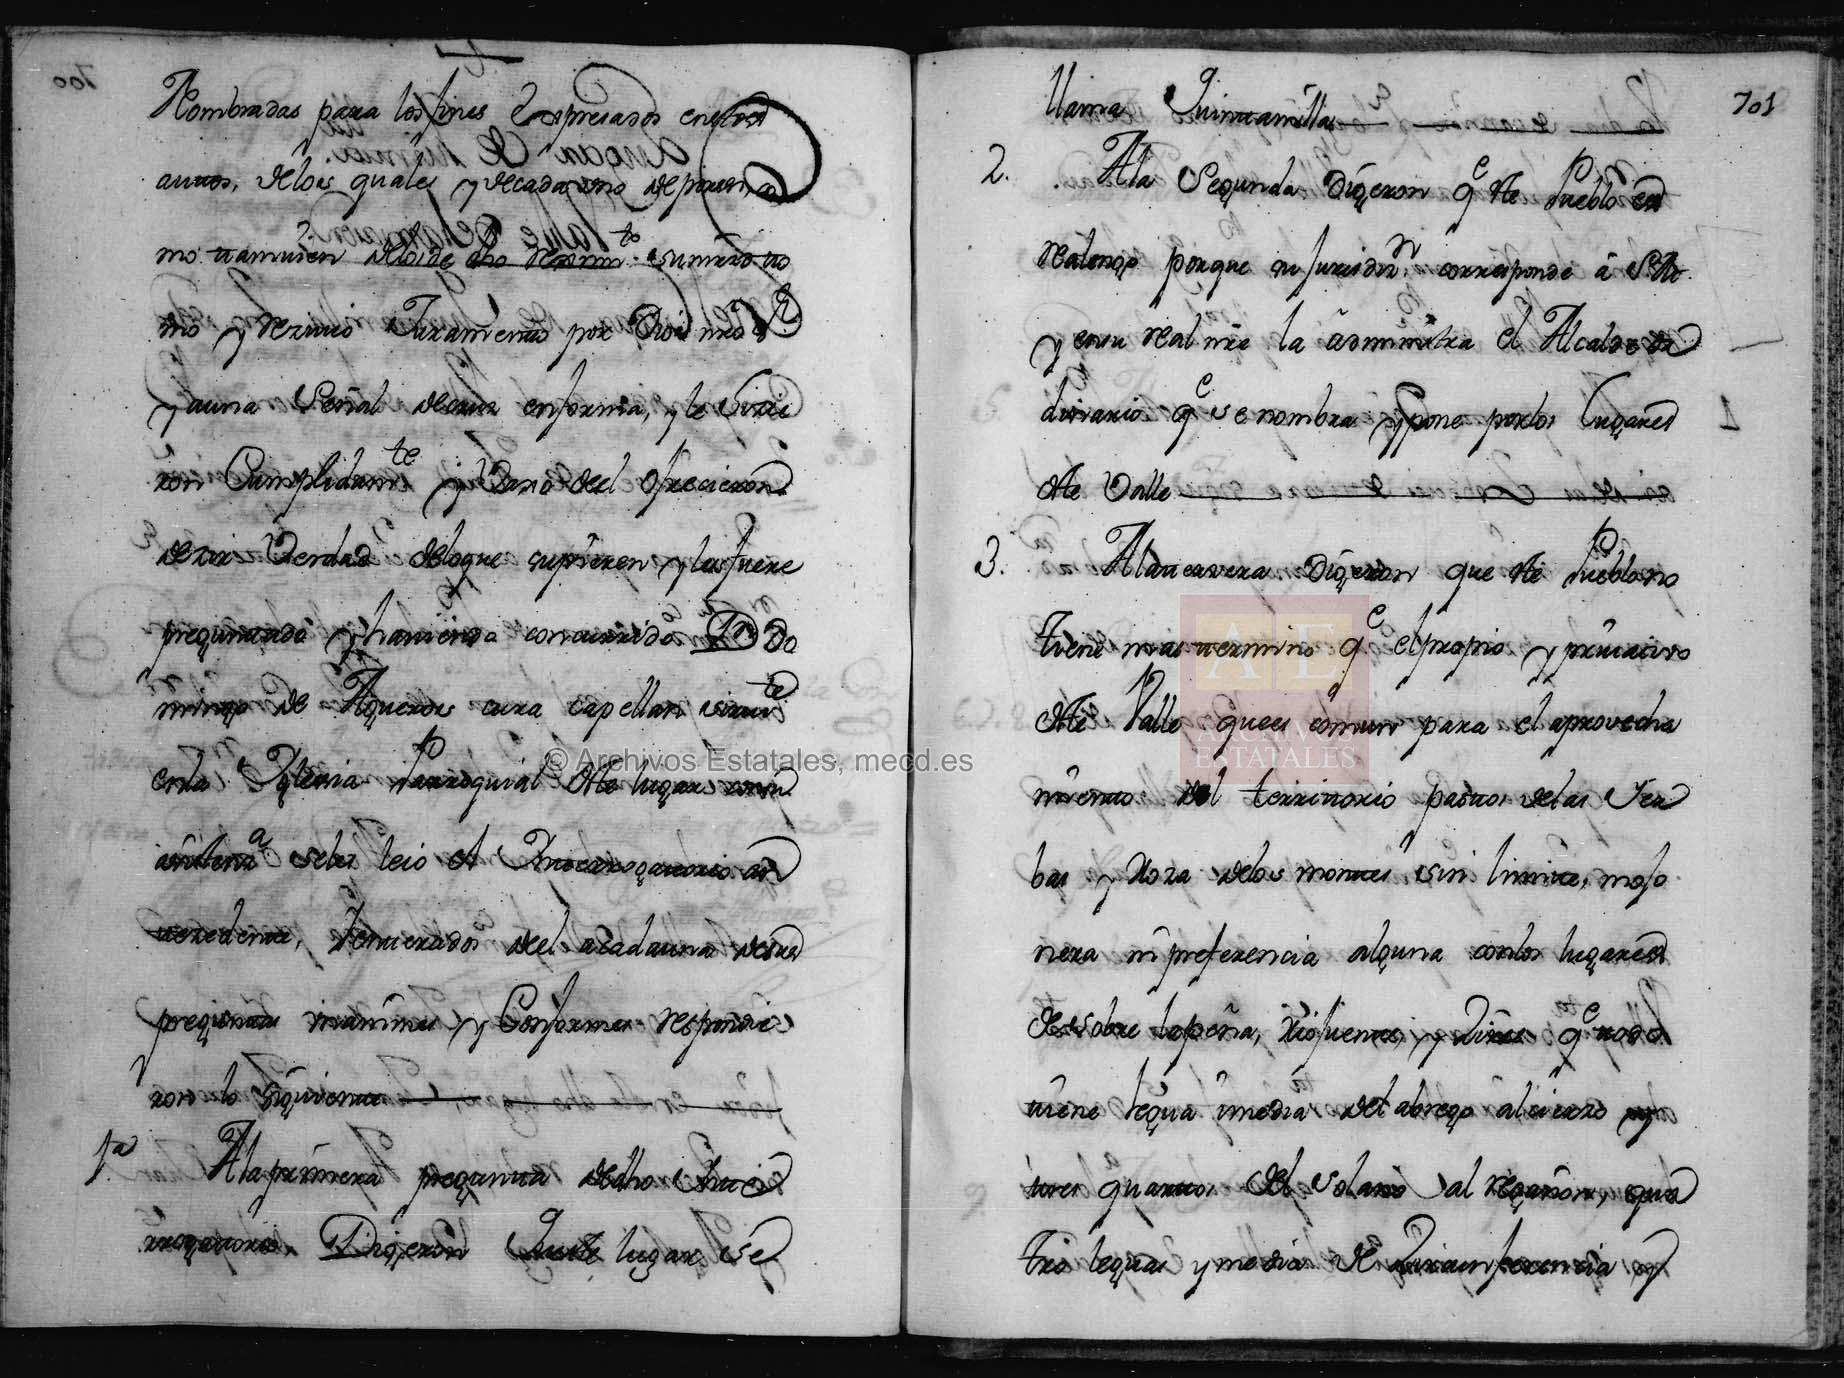 Nombradas para los fines Espresados enestos
autos, delos quales y decada uno deporsi, co
mo tamvien delos de dho Reximto. su mrd to
mo y Rezivio Juramento por Dios nro Sr.
y auna Señal decruz enforma, y le hicie
ron Cumplidamte y Vaxo deel ofrecieron
dezir Verdad deloque supieren y les fuere
preguntado y haviendo concurrido Dn Do
mingo de Agueros cura capellan sirvte
enla Yglesia Parroquial dste lugar con su
asistenza seles leio el Interrogatorio an
tezedente, Ynterados deel acadauna desus
preguntas unanimes y Conformes respondie
ron lo siguiente
1a Ala primera pregunta deldho Inte
rrogatorio, Digeron Queste lugar se
701
llama Quintanilla
2. Ala Segunda Digeron qe ste Pueblo es
realengo porque su jurisdizn corresponde á S.M.
y ensu real nre la administra el Alcalde or
dinario qe se nombra y pone porlos Lugares
dste Valle
3. Ala tercera Digeron que ste Pueblo no
tiene mas termino qe el propio y privativo
dste Valle quees comun para el aprovecha
miento del territorio pastos delas Yer
bas y Roza delos montes sin limite, mojo
nera ni preferencia alguna conlos lugares
de sobre la peña, Riofuentes, y Vires qe todo
tiene legua i media del abrego al cierzo y
tres quartos del solano al regañon, qua
tro leguas y media de Zircunferencia y
© Archivos Estatales, mecd.es
AE
ARCHIVOS
ESTATALES